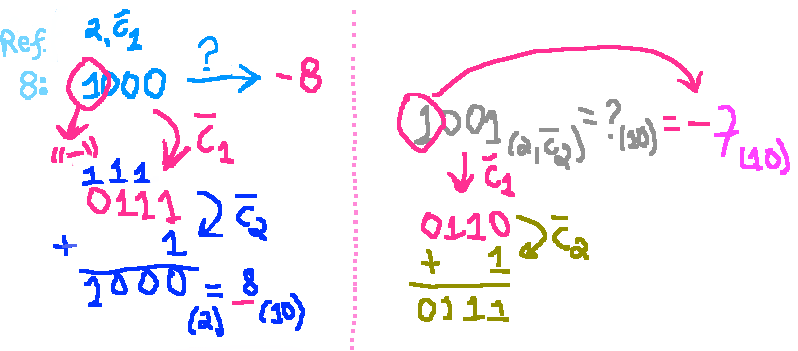 Ref. 2, c̄1
8: 1000 ? → -8
"-" c̄1
111
0111 c̄2
+ 1
1000(2) = -8(10)
1001(2, c̄2) = ?(10) = -7(10)
c̄1
0110 c̄2
+ 1
0111